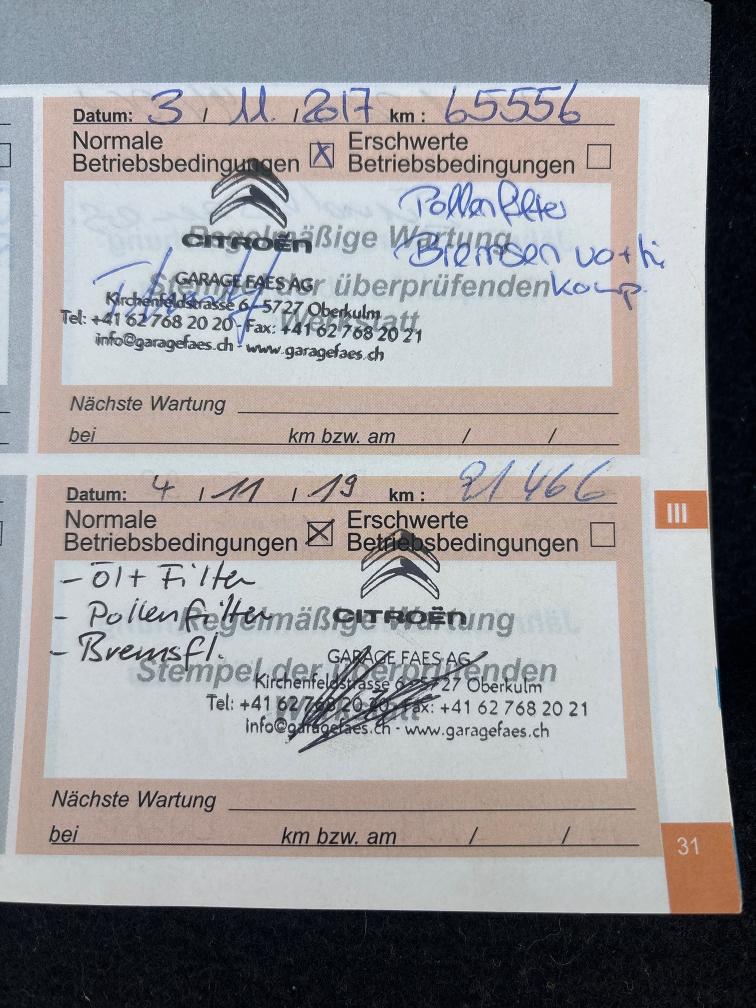 Datum: 3 / 11. / 2017 km : 65556
Normale Betriebsbedingungen X Erschwerte Betriebsbedingungen
Pollenfilter
Regelmäßige Wartung
CITROËN
Bremsen vo + hi
komp.
Stempel der überprüfenden
Werkstatt
GARAGE FAES AG
Kirchenfeldstrasse 6 - 5727 Oberkulm
Tel: +41 62 768 20 20 - Fax: +41 62 768 20 21
info@garagefaes.ch - www.garagefaes.ch
Nächste Wartung
bei km bzw. am / /
Datum: 4 / 11 / 19 km : 91466
Normale Betriebsbedingungen X Erschwerte Betriebsbedingungen
- Öl + Filter
- Pollenfilter
- Bremsfl.
Regelmäßige Wartung
CITROËN
Stempel der überprüfenden
Werkstatt
GARAGE FAES AG
Kirchenfeldstrasse 6 - 5727 Oberkulm
Tel: +41 62 768 20 20 - Fax: +41 62 768 20 21
info@garagefaes.ch - www.garagefaes.ch
Nächste Wartung
bei km bzw. am / /
III
31